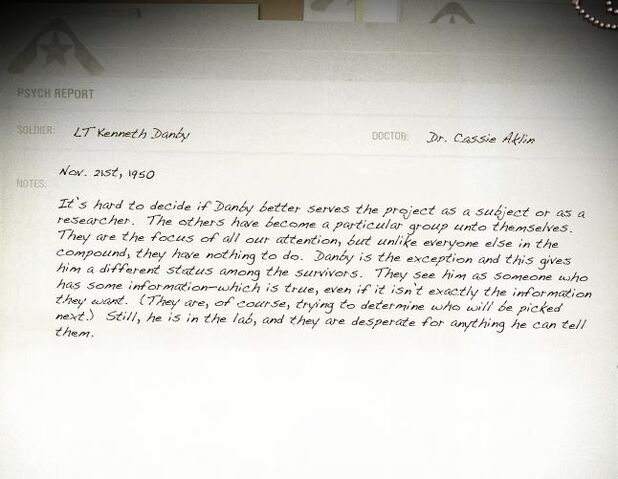 PSYCH REPORT
SOLDIER: LT Kenneth Danby DOCTOR: Dr. Cassie Aklin
NOTES: Nov. 21st, 1950
It's hard to decide if Danby better serves the project as a subject or as a
researcher. The others have become a particular group unto themselves.
They are the focus of all our attention, but unlike everyone else in the
compound, they have nothing to do. Danby is the exception and this gives
him a different status among the survivors. They see him as someone who
has some information—which is true, even if it isn't exactly the information
they want. (They are, of course, trying to determine who will be picked
next.) Still, he is in the lab, and they are desperate for anything he can tell
them.